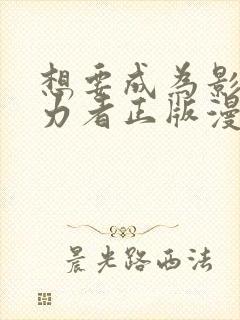 想要成为影
力者正版漫
晨光路西法